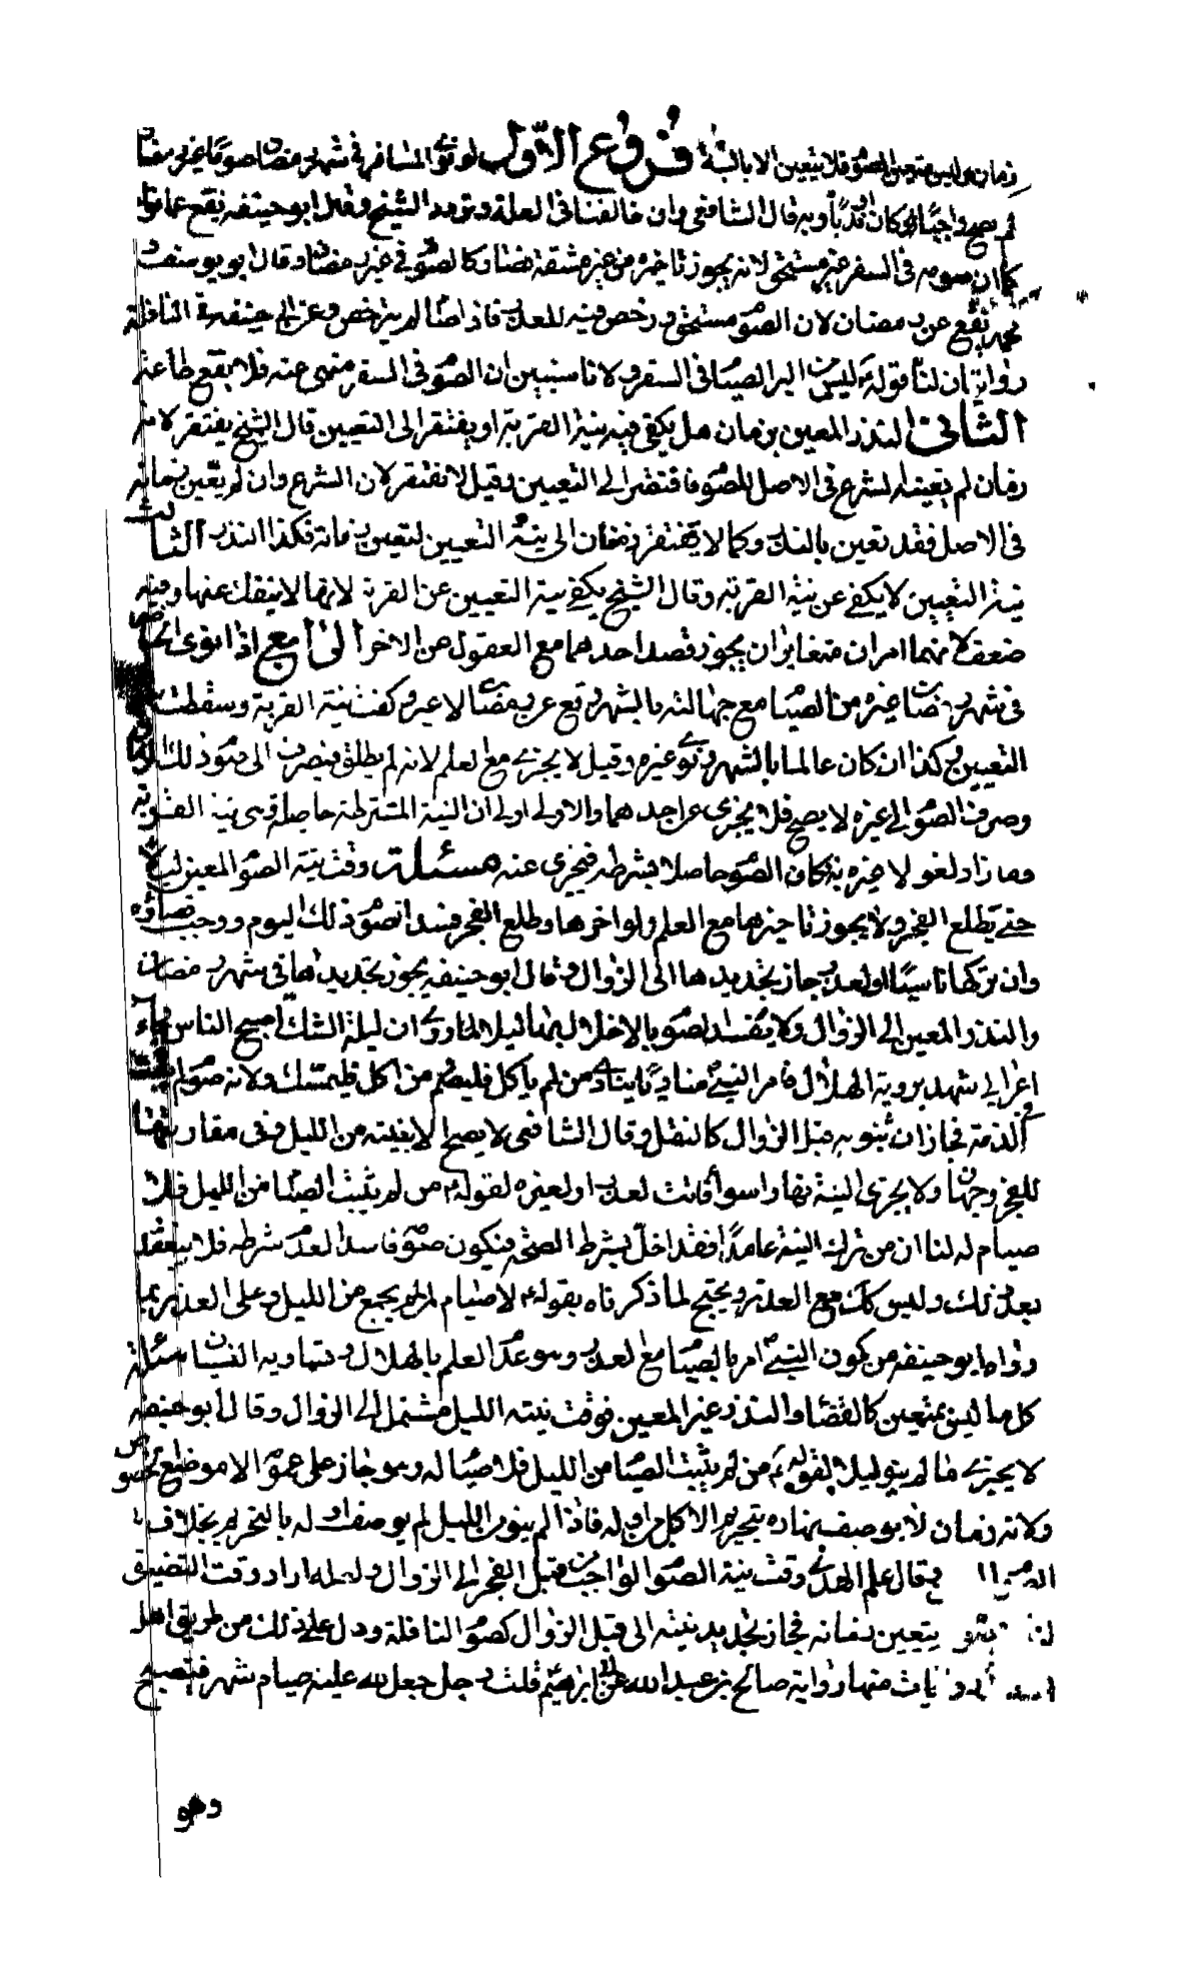 زمان وليس متعين للصوم فلا يتعين الا بالنية فروع الاول لو نوى المسافر في شهر رمضان صوما غير رمضان
لم يصح واجبا كان او ندبا وبه قال الشافعي وان خالفنا في العلة وتردد الشيخ وقال ابو حنيفه يقع عما نواه
كما ان صومه في السفر غير مستحق لانه يجوز تاخيره من غير مشقة فضا وكالصوم في غير رمضان وقال ابو يوسف و
محمد يقع عن رمضان لان الصوم مستحق ورخص فيه للعذر فاذا صام لم يترخص وعن ابي حنيفه في النافلة
روايتان لنا قوله ليس من البر الصيام في السفر ولانا سنبين ان الصوم في السفر منهى عنه فلا يقع طاعة
الثاني النذر المعين بزمان هل يكفي فيه نية القربة او يفتقر الى التعيين قال الشيخ يفتقر لانه
زمان لم يعينه الشرع في الاصل للصوم فافتقر الى التعيين وقيل لا يفتقر لان الشرع وان لم يعين زمانه
في الاصل فقد تعين بالنذر وكما لا يفتقر رمضان الى نية التعيين لتعين زمانه فكذا النذر الثالث
نية التعيين لا يكفي عن نية القربة وقال الشيخ يكفي نية التعيين عن القربة لانها لا ينفك عنها وفيه
ضعف لانهما امران متغايران يجوز قصد احدهما مع العقول عن الاخر الرابع اذا نوى الحاضر
في شهر رمضان غيره من الصيام مع جهالته بالشهر وقع عن رمضان لا غير وكفت نية القربة وسقطت نية
التعيين وكذا ان كان عالما بالشهر ونوى غيره وقيل لا يجزي مع العلم لانه لم يطلق فينصرف الى صوم ذلك الزمان
وصرف الصوم الى غيره لا يصح فلا يجزى عن احدهما والاولى اولى ان النية المشترطة حاصلة وهى نية القربة
وما زاد لغو لا عبرة به فكان الصوم حاصلا بشرطه فيجزى عنه مسئلة وقت نية الصوم المعين ليلا
حتى يطلع الفجر ولا يجوز تاخيرها مع العلم ولو اخرها وطلع الفجر فسد صوم ذلك اليوم ووجب قضاؤه
وان تركها ناسيا او لعذر جاز تجديدها الى الزوال وقال ابو حنيفه يجوز تجديدها في شهر رمضان
والنذر المعين الى الزوال ولا يفسد الصوم بالاخلال بها ليلا لما روى ان ليلة الشك اصبح الناس فجاء
اعرابي شهد بروية الهلال فامر النبي مناديا ينادى من لم ياكل فليصم ومن اكل فليمسك ولانه صوم لم يثبت
في الذمة فجاز ان ينويه قبل الزوال كالنفل وقال الشافعى لا يصح الا بنيته من الليل وفي مقارنتها
للفجر وجهان ولا يجزى النية نهارا سواء فاتت لعذر او لغيره لقوله من لم يثبت الصيام من الليل فلا
صيام له لنا ان من ترك النية عامدا فقد اخل بشرط الصحة فيكون صومه فاسدا لعدم شرطه فلا ينعقد
بعد ذلك وليس كذلك مع العذر ويحتج لما ذكرناه بقوله لا صيام لمن لم يجمع من الليل وعلى العذر بما
رواه ابو حنيفه من كون النبي امر بالصيام مع العذر وهو عدم العلم بالهلال ويساويه النسيان مسئلة
كل ما ليس بمتعين كالقضاء والنذر غير المعين فوقت نيته الليل مستمل الى الزوال وقال ابو حنيفه
لا يجزى ما لم ينو ليلا لقوله من لم يثبت الصيام من الليل فلا صيام له وهو جاز على عمومه الا موضع مخصوص
ولانه زمان لا يوصف نهاره بتحريم الاكل من اوله فاذا لم ينو من الليل لم يوصف اوله بالتحريم بخلاف
وقال علم الهدى وقت نية الصوم الواجب من قبل الفجر الى الزوال ولعله اراد وقت التضيق
لنا يتعين زمانه فجاز تجديد نيته الى قبل الزوال كصوم النافلة ودل على ذلك من طريق اهل
روايات منها رواية صالح بن عبد الله عن ابي ابراهيم قلت رجل جعل لله عليه صيام شهر فيصبح
وهو